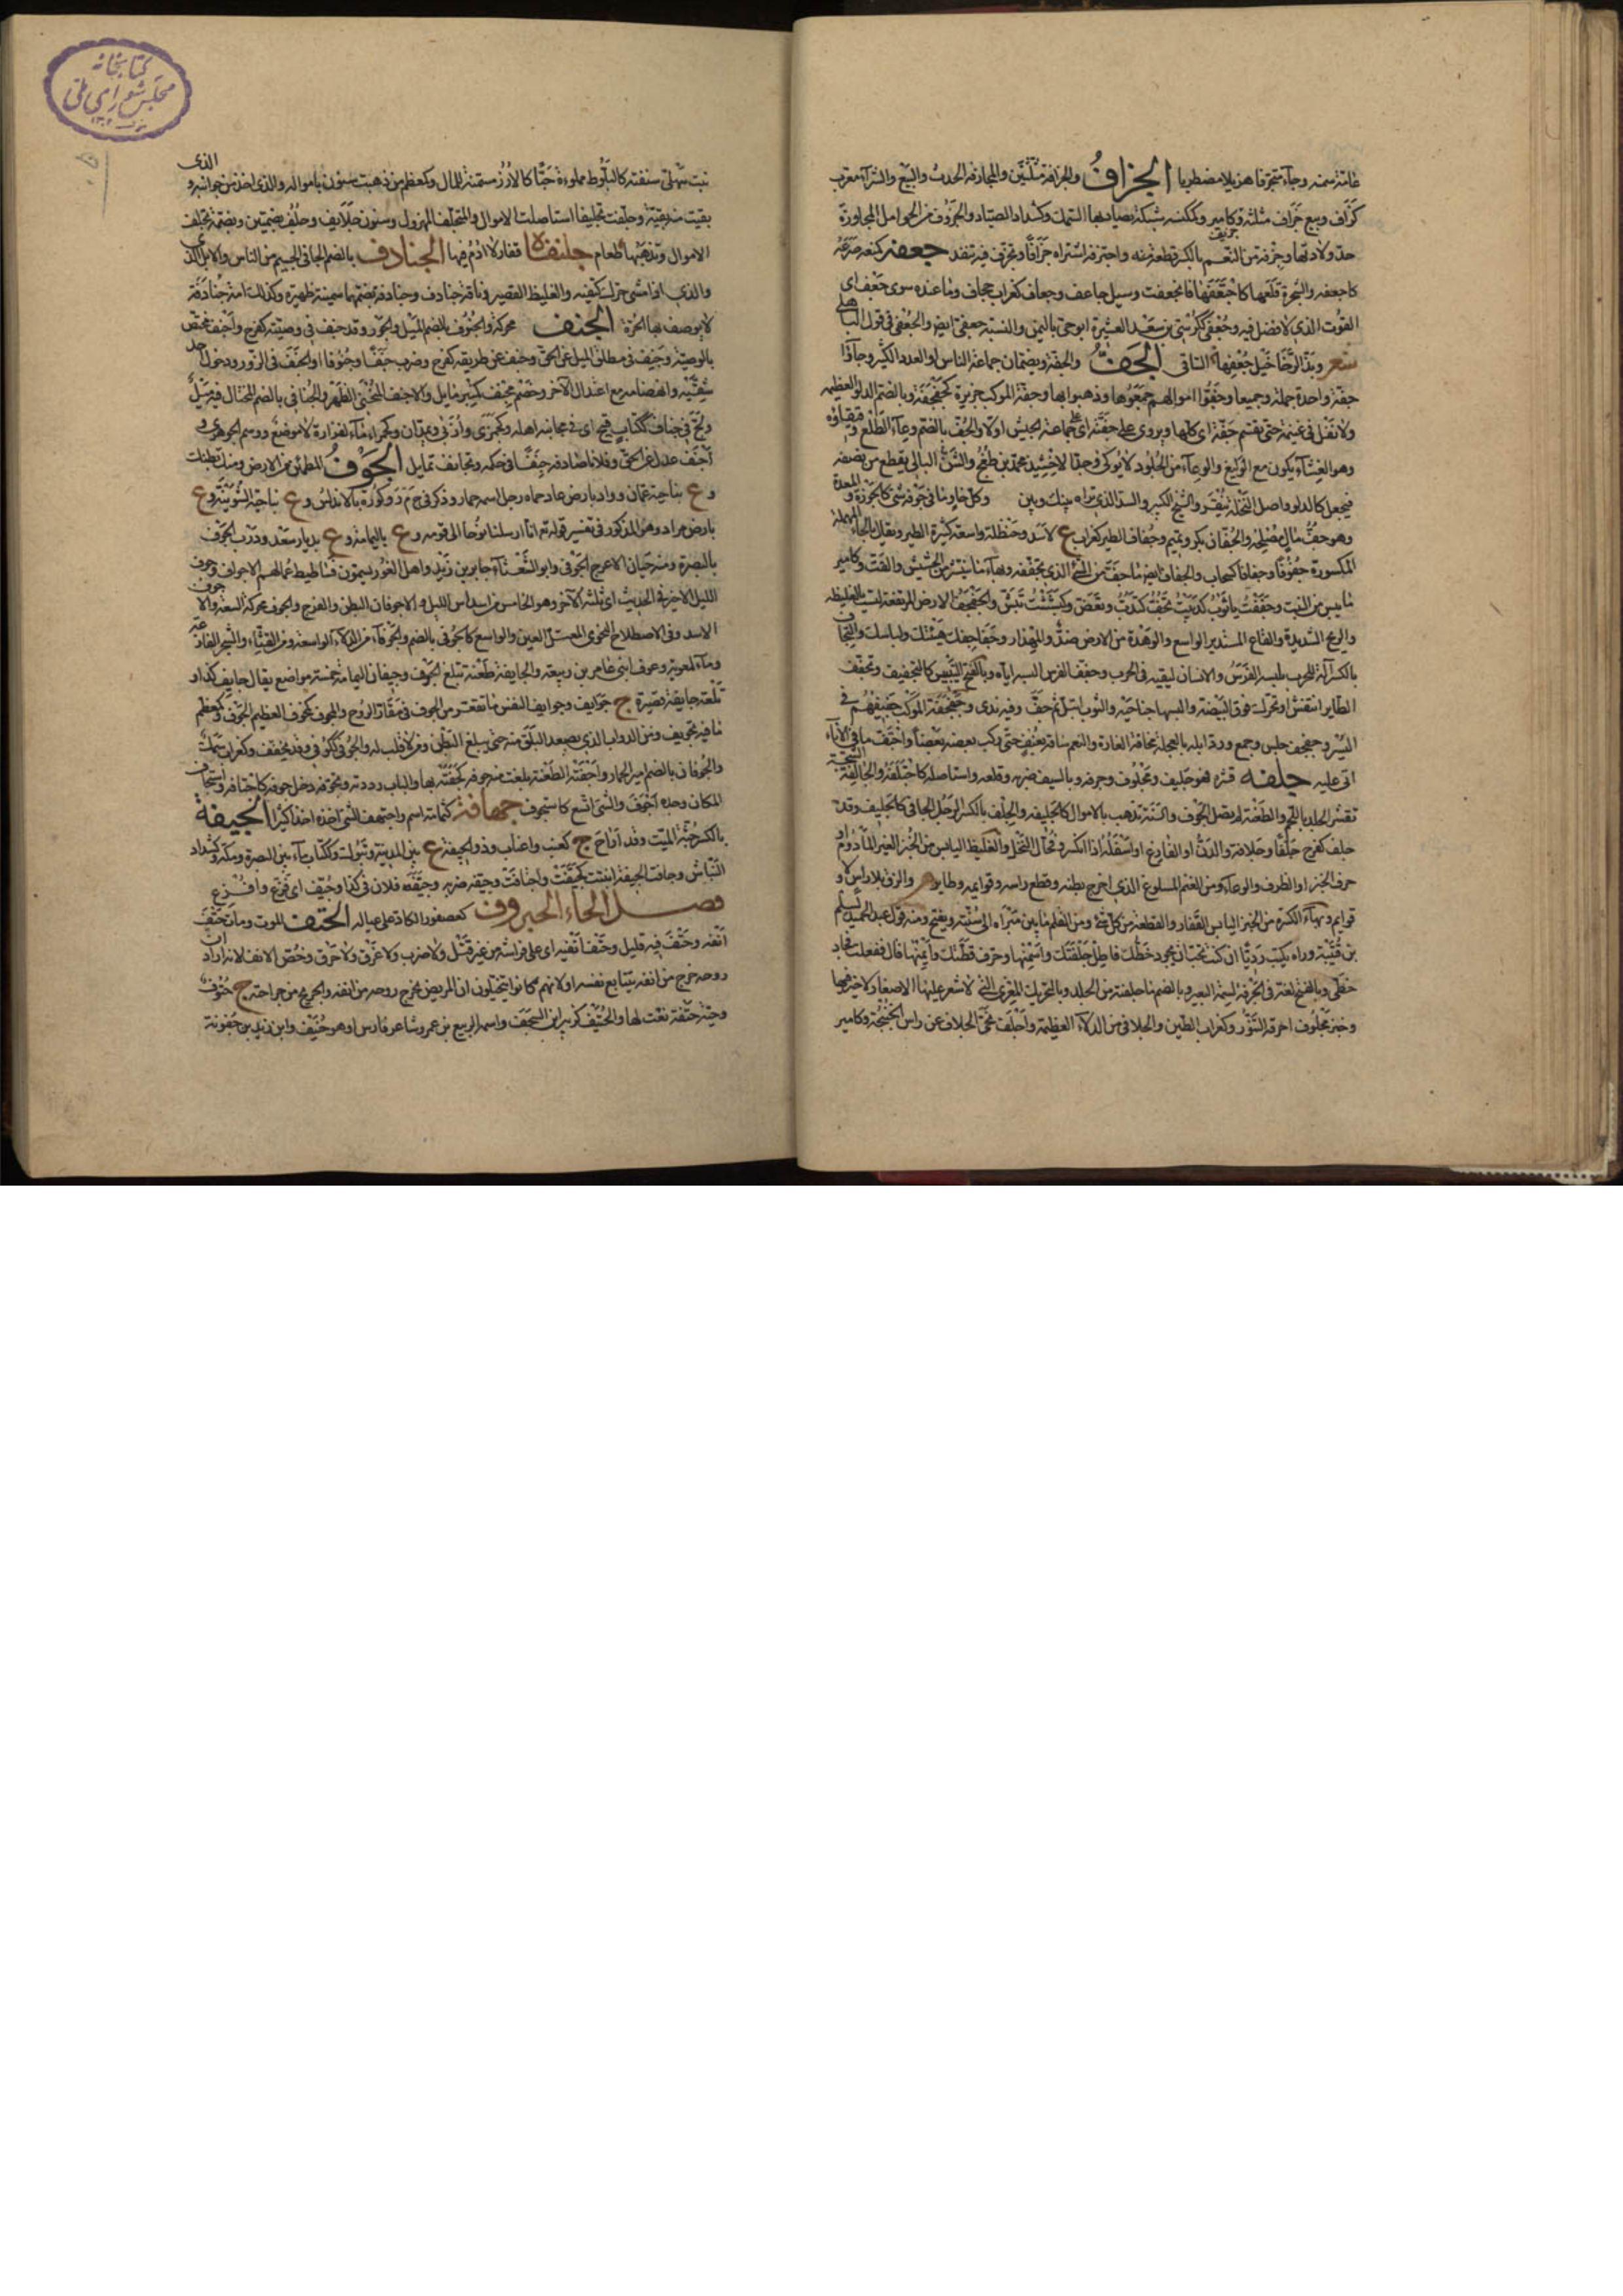 عامة سمنه وجاء متجرفا هزيلا مضطربا الجزاف والجزافة مثلثتين والمجازفة الحدس والبيع والشراء معرب
كزاف وبيع جزاف مثلثة وكامير وكمكنسة شبكة يصاد بها السمك وكشداد الصياد والجزوف من الحوامل المجاوزة
حد ولادتها وجزفة من النعم بالكسر قطعة منه واجتزفه اشتراه جزافا وتجزف فيه تنفذ جعفه كمنعه صرعه
كاجعفه والشجرة قلعها كاجتعفها فانجعفت وسيل جاعف وجعاف كغراب جحاف وما عنده سوى جعف اى
القوت الذى لا فضل فيه وجعفى ككرسى بن سعد العشيرة ابو حى باليمن والنسبة جعفى ايضا والجعفى فى قول الباهلى
شعر وبذ الرخاخيل جعفيها الساقى الجف والجفة ويضمان جماعة الناس او العدد الكثير وجاؤا
جفة واحدة جملة وجميعا وجفوا اموالهم جمعوها وذهبوا بها وجفة الموكب هزيزه كجفجفته وبالضم الدلو العظيمة
ولا نفل فى غنيمة حتى تقسم جفة اى كلها ويروى على جفته اى على جماعة الجيش اولا والجف بالضم وعاء الطلع
وهو الغشاء يكون مع الوليع والوعاء من الجلود لا يوكى وجد الاخشيد محمد بن طغج والشن البالى يقطع من نصفه
فيجعل كالدلو واصل النخلة ينقر والشيخ الكبير والسد الذى تراه بينك وبين وكل خاو ما فى جوفه شى كالجوزة و
وهو جف مال مصلحه والجفان بكر وتميم وجفاف الطير كغراب ع لاسد وحنظلة واسعة كثيرة الطير ويقال بالحاء المهملة
المكسورة جفوفا وجفافا كسحاب والجفاف ايضا ما جف من الشئ الذى تجففه وبهاء ما ينتثر من الحشيش والقت وكامير
ما يبس من النبت وجففت يا ثوب كدببت تجف كتدب وتعض وكبششت تبش والجفجف الارض المرتفعة ليست بالغليظة
والريح الشديدة والقاع المستدير الواسع والوهدة من الارض ضد والمهذار وجفاجفك هيئتك ولباسك والتجفاف
بالكسر آلة للحرب يلبسه الفرس والانسان ليقيه فى الحرب وجفف الفرس البسه اياه وبالفتح التيبيس كالتجفيف وتجفف
الطاير انتفش او تحرك فوق البيضة والبسها جناحيه والثوب ابتل ثم جف وفيه ندى وجفجفة الموكب حفيفهم فى
السير وجفجف حبس وجمع ورد ابله بالعجلة مخافة الغارة والنعم ساقه بعنف حتى ركب بعضه بعضا واجتف ما فى الاناء
اتى عليه جلفه قشره فهو جليف ومجلوف وجرفه وبالسيف ضربه وقلعه واستاصله كاجتلفه والجالفة الشجة
تقشر الجلد باللحم والطعنة لم تصل الجوف والسنة تذهب بالاموال كالجليفة والجلف بالكسر الرجل الجافى كالجليف وقد
جلف كفرح جلفا وجلافة والدن او الفارغ او اسفله اذا انكسر وفحال النخل والغليظ اليابس من الخبز الغير المادوم او
حرف الخبز او الظرف والوعاء ومن الغنم المسلوخ الذى اخرج بطنه وقطع راسه وقوايمه وطاير والزق بلا راس ولا
قوايم وبهاء الكسرة من الخبز اليابس القفار والقطعة من كل شئ ومن القلم ما بين مبراه الى سنته ويفتح ومنه قول عبد الحميد لسلم
بن قتيبة وراه يكتب رديا ان كنت تحب ان تجود خطك فاطل جلفتك واسمنها وحرف قطتك وايمنها قال ففعلت فجاد
خطى وبالفتح لغة فى الجرفة لسمة البعير وبالضم ما جلفته من الجلد وبالتحريك المعزى التى لا شعر عليها الا صغار لا خير فيها
وخبز مجلوف احرقه التنور وكغراب الطين والجلافى من الدلاء العظيمة واجلف نحى الجلاف عن راس الخنبجة وكامير
نبت سهلى سنفته كالبلوط مملوءة حبا كالارز مسمنة للمال وكمعظم من ذهبت سنون بامواله والذى اخذ من جوانبه والذى
بقيت منه بقية وجلفت تجليفا استاصلت الاموال والمتجلف المهزول وسنون جلايف وجلف بضمتين وبضمة تجلف
الاموال وتذهبها طعام جلنفاة قفار لا ادم فيها الجنادف بالضم الجافى الجسيم من الناس والابل
والذى اذا مشى حرك كتفيه والغليظ القصير وناقة جنادف وجنادفة بضمهما سمينة ظهيرة وكذلك امة جنادفة
لا يوصف بها الحرة الجنف محركة والجنوف بالضم الميل والجور وقد جنف فى وصيته كفرح واجنف مختص
بالوصية وجنف فى مطلق الميل عن الحق وجنف عن طريقه كفرح وضرب جنفا وجنوفا او الجنف فى الزور دخول احد
شقيه وانهضامه مع اعتدال الآخر وخصم مجنف كمنبر مايل والاجنف المنحنى الظهر والجنافى بالضم المختال فيه ميل
ولج فى جناف ككتاب قبيح اى فى مجانبة اهله وكجمزى واربى ويمدان وكحمراء ماء لفزارة لا موضع ووهم الجوهرى و
اجنف عدل عن الحق وفلانا صادفه جنفا فى حكمه وتجانف تمايل الجوف المطمئن من الارض ومنك بطنك
وع بناحية عمان وواد بارض عاد حماه رجل اسمه حمار وذكر فى ح م ر وكورة بالاندلس وع بناحية اكشونية وع
بارض مراد وهو المذكور فى تفسير قوله تع انا ارسلنا نوحا الى قومه وع باليمامة وع بديار سعد ودرب الجوف
بالبصرة ومنه حيان الاعرج الجوفى وابو الشعثاء جابر بن زيد واهل الغور يسمون فساطيط عمالهم الاجواف وجوف
الليل الآخر فى الحديث اى ثلثه الآخر وهو الخامس من اسداس الليل والاجوفان البطن والفرج والجوف محركة السعة والاجوف
الاسد وفى الاصطلاح النحوى المعتل العين والواسع كالجوفى بالضم والجوفاء من الدلاء الواسعة ومن القنا والشجر الفارغة
وماء لمعوية وعوف ابنى عامر بن ربيعة والجايفة طعنة تبلغ الجوف وجيفان اليمامة خمسة مواضع يقال جايف كذا و
تلعة جايفة قعيرة ج جوايف وجوايف النفس ما تقعر من الجوف فى مقار الروح والمجوف كمخوف العظيم الجوف وكمعظم
ما فيه تجويف ومن الدواب الذى يصعد البلق منه حتى يبلغ البطن ومن لا قلب له والجوفى ككوفى وقد يخفف وكغراب سمك
والجوفان بالضم اير الحمار واجفته الطعنة بلغت منه جوفه كجفته بها والباب رددته وتجوفه دخل جوفه كاجتافه واستجاف
المكان وجده اجوف والشئ اتسع كاستجوف جهافة كثمامة اسم واجتهف الشئ اخذه اخذا كثيرا الجيفة
بالكسر جثة الميت وقد اراح ج كعنب واعناب وذو الجيفة ع بين المدينة وتبوك وككتاب ماء بين البصرة ومكة وكشداد
النباش وجافت الجيفة انتنت كجيفت واجتافت وجيفه ضربه وجيف فلان فى كذا وجيف اى فزع وافزع
فصل الحاء الحبروف كعصفور الكاد على عياله الحتف الموت ومات حتف
انفه وحتف فيه قليل وحتف انفيه اى على فراشه من غير قتل ولا ضرب ولا غرق ولا حرق وخص الانف لانه اراد ان
روحه خرج من انفه بتتابع نفسه او لانهم كانوا يتخيلون ان المريض تخرج روحه من انفه والجريح من جراحته ج حتوف
وحية حتفة نعت لها والحتيف كزبير ابن السجف واسمه الربيع بن عمرو شاعر فارس او هو حنيف وابن زيد بن جعونة
كتابخانه
مجلس شوراى ملى